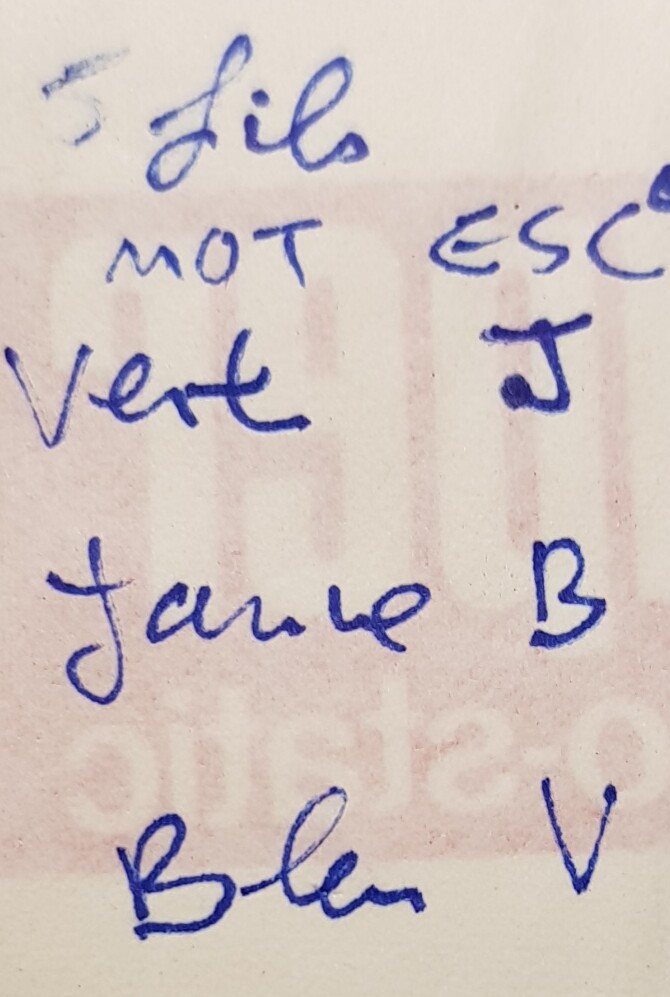 5 fils
MOT ESC
Vert J
Jaune B
Bleu V
o-static